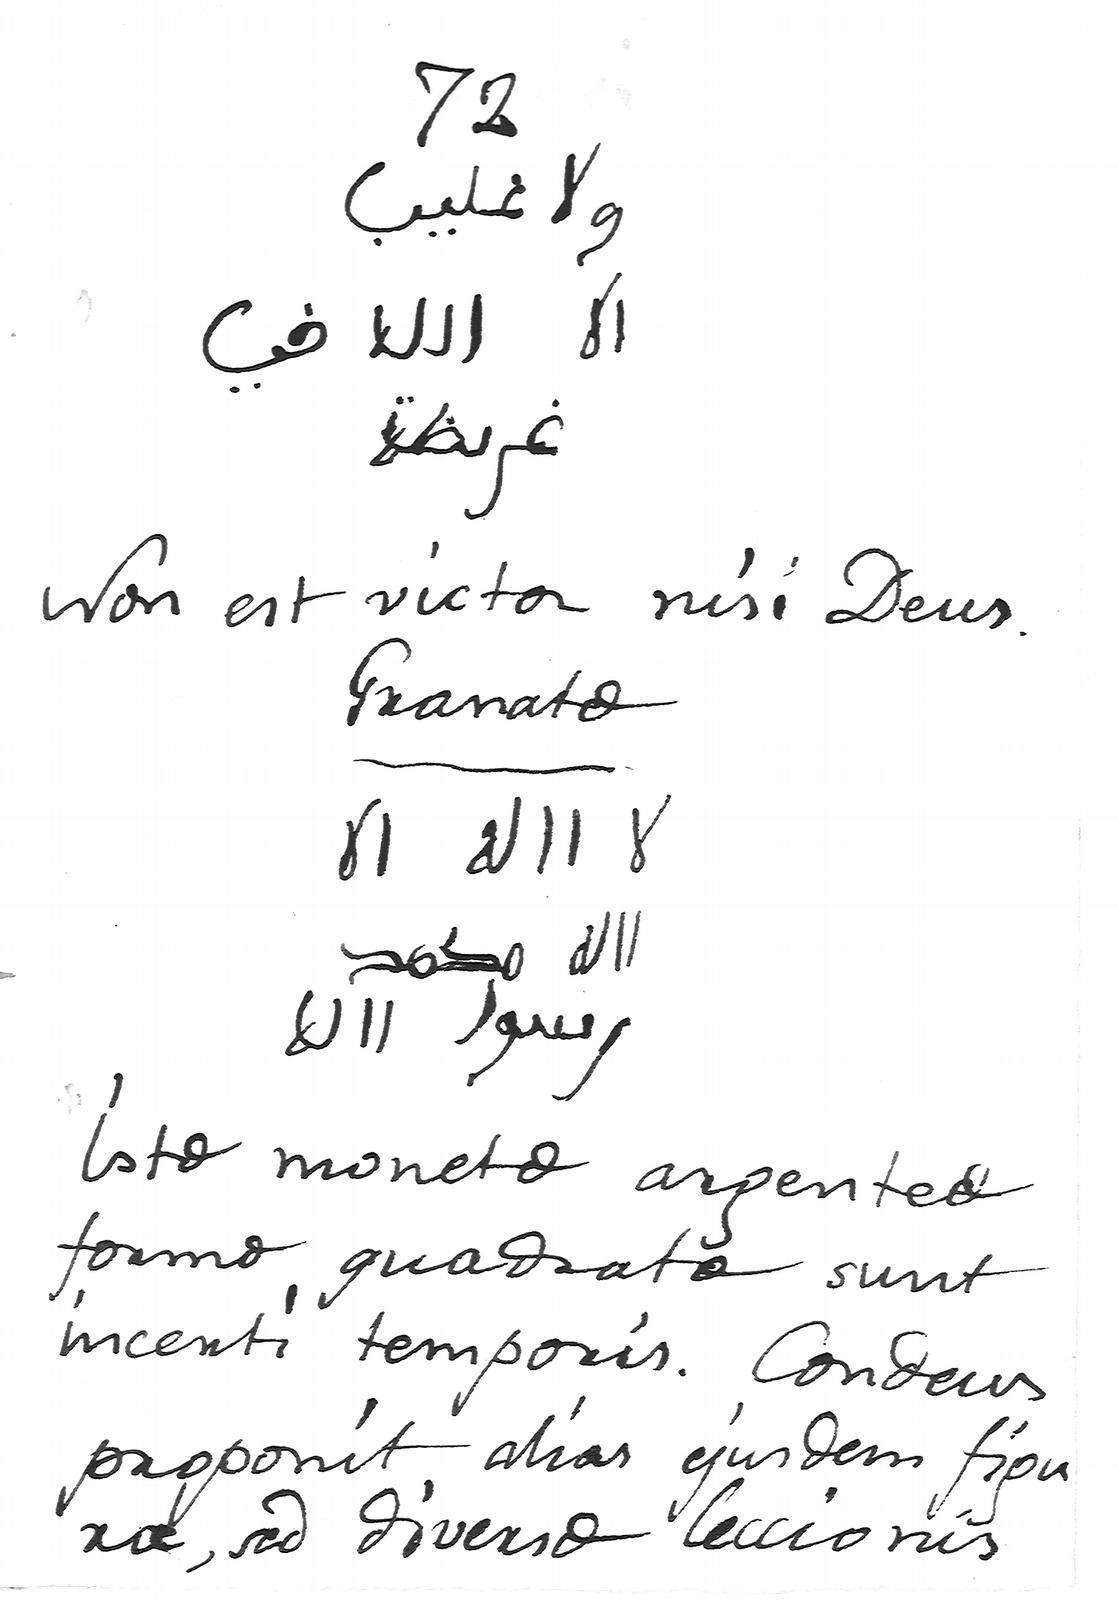 72
ولا غليب
الا الله في
غريظة
Non est victor nisi Deus.
Granata
لا االه الا
االله محمد
رسول االله
Ista moneta argentea
forma quadrata sunt
incerti temporis. Condeus
proponit alias ejusdem figu
ræ, sed diversa leccionis